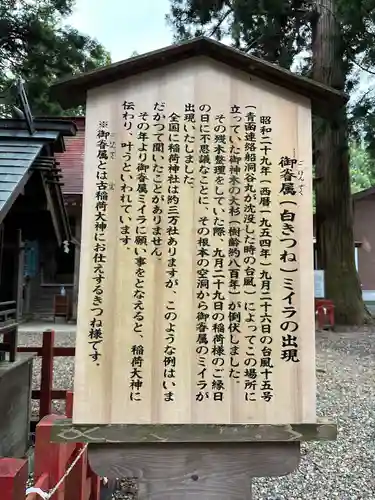 御眷属（白きつね）ミイラの出現
昭和二十九年（西暦一九五四年）九月二十六日の台風十五号
（青函連絡船洞爺丸が沈没した時の台風）によってこの場所に
立っていた御神木の大杉（樹齢約八百年）が倒伏しました。
その残木整理をしていた際、九月二十九日の稲荷様のご縁日
の日に不思議なことに、その根本の空洞から御眷属のミイラが
出現いたしました。
全国に稲荷神社は約三万社ありますが、このような例はいま
だかつて聞いたことがありません。
その年より御眷属ミイラに願い事をとなえると、稲荷大神に
伝わり、叶うといわれています。
※御眷属とは古稲荷大神にお仕えするきつね様です。